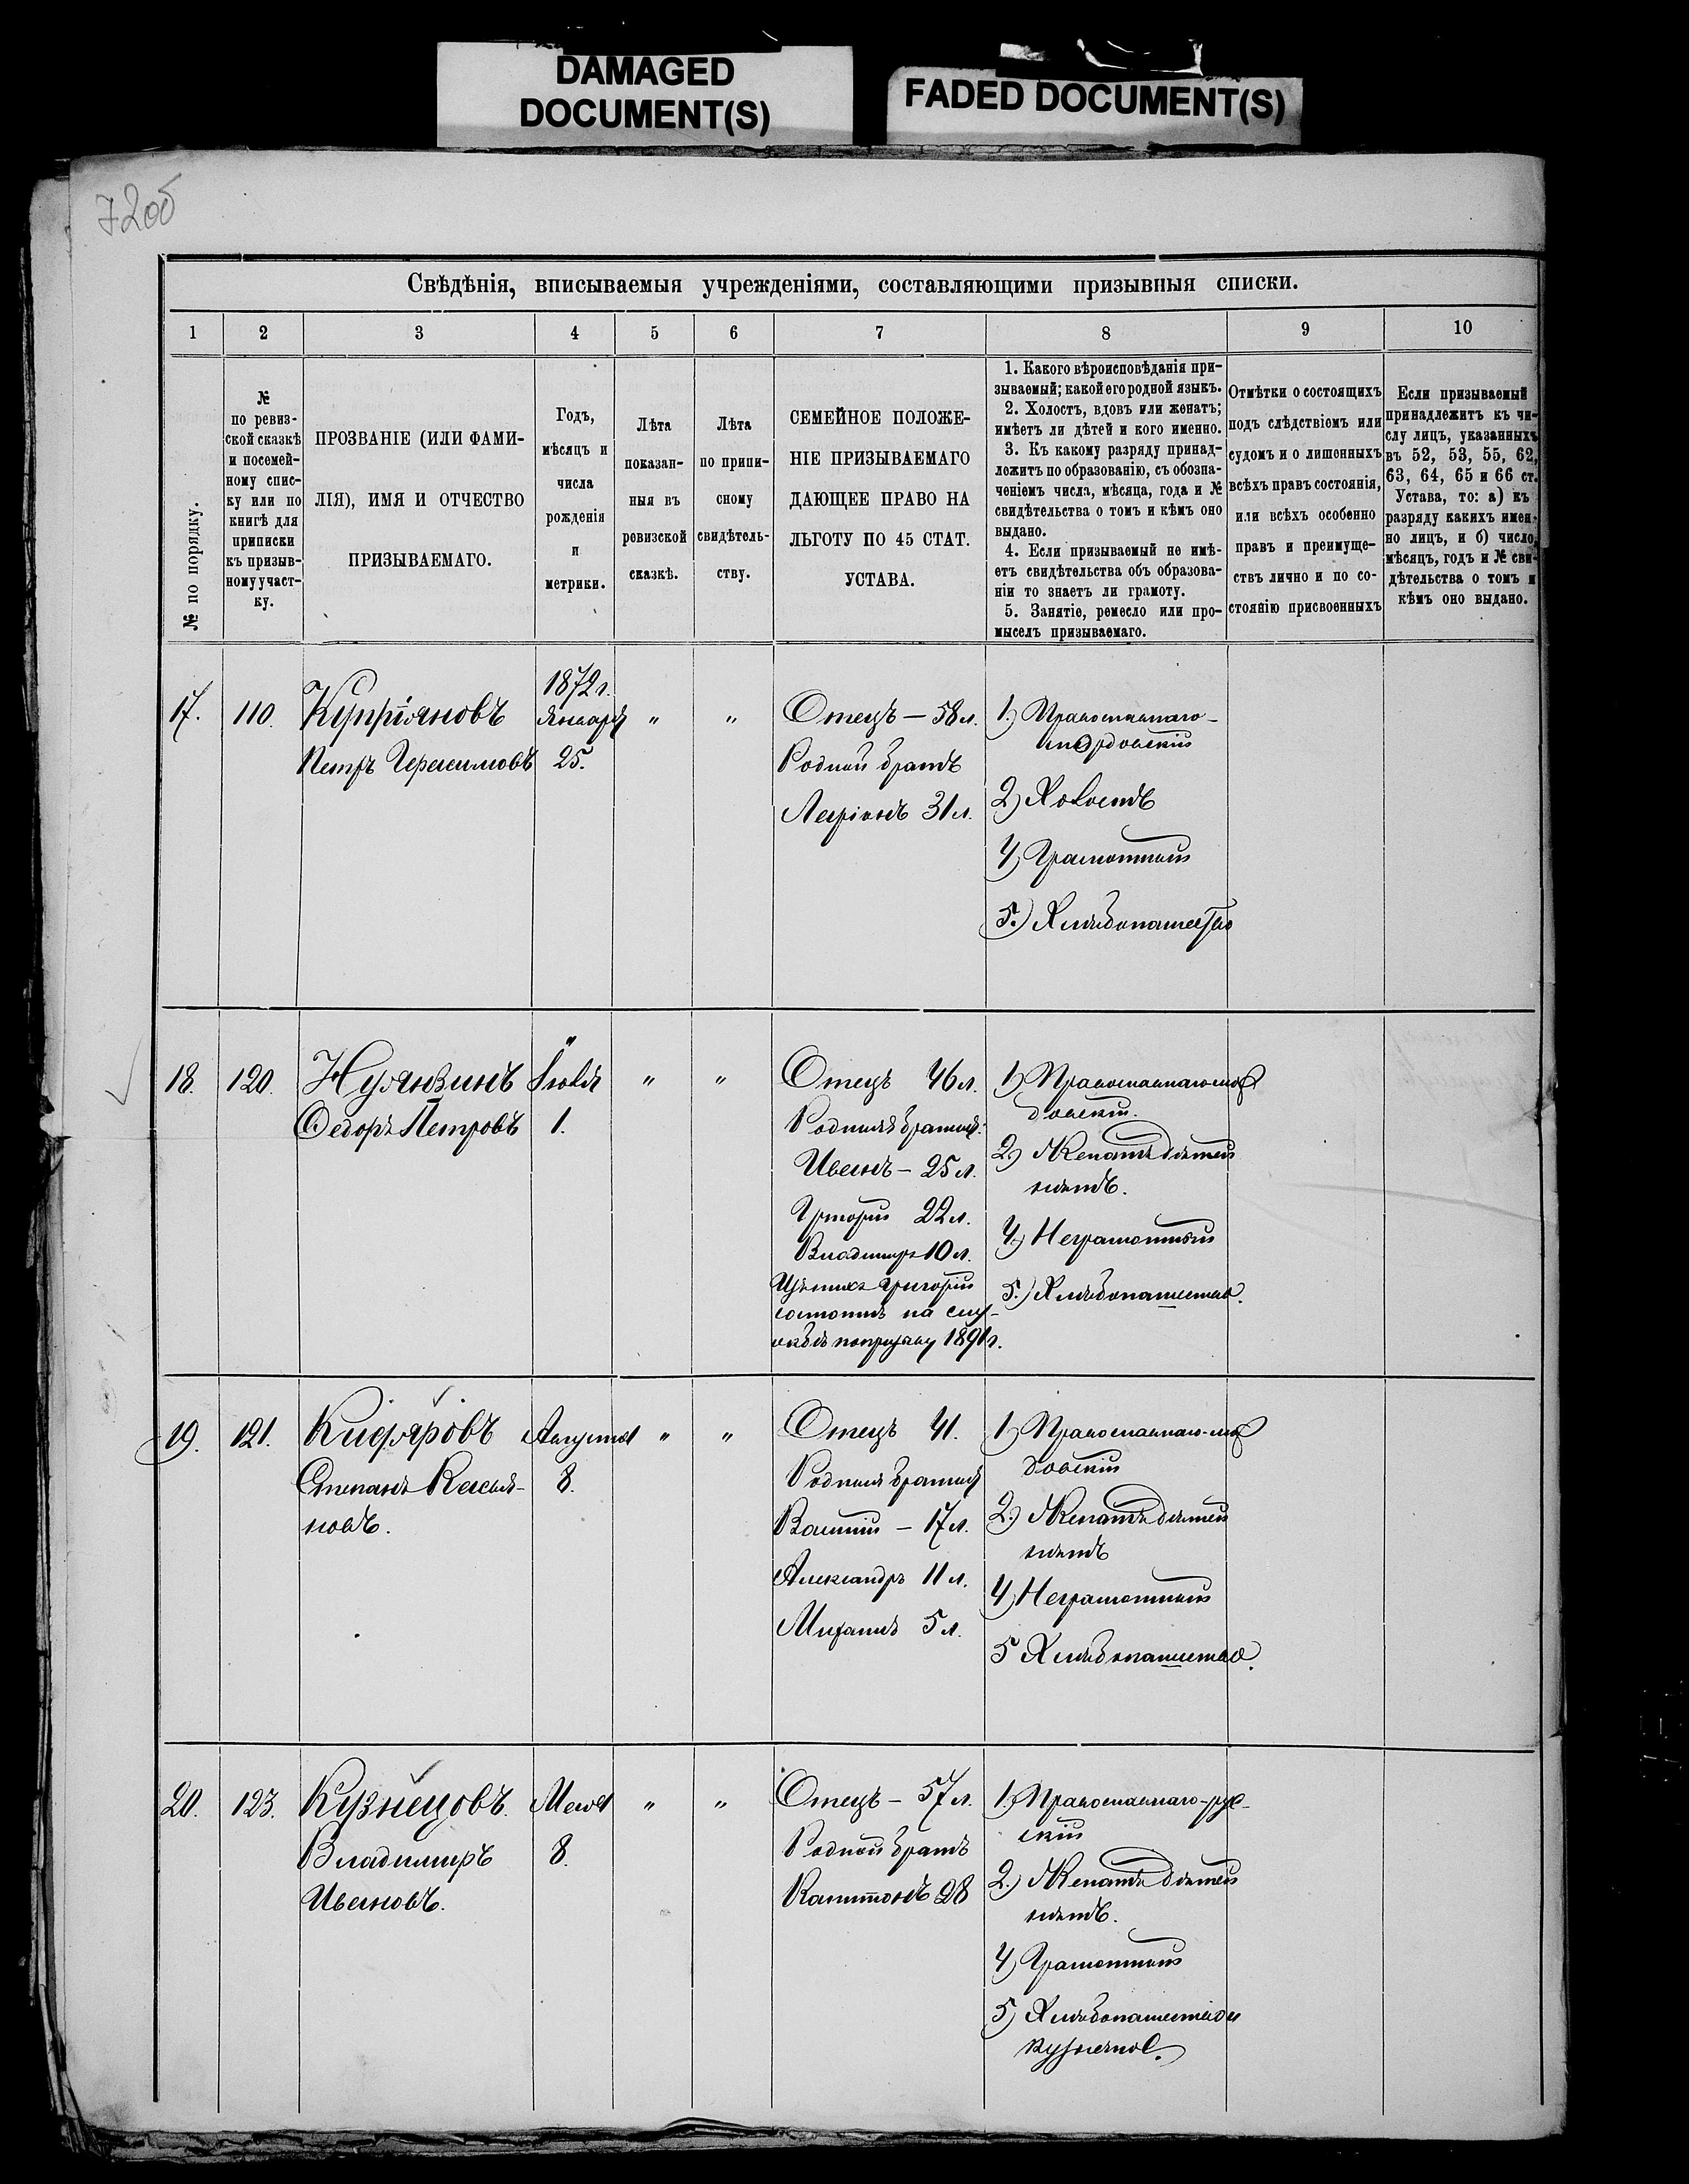 DAMAGED
DOCUMENT(S)
FADED DOCUMENT(S)
72об
Свѣдѣнія, вписываемыя учрежденіями, составляющими призывныя списки.
1 2 3 4 5 6 7 8 9 10
№ по порядку.
№
по ревиз-
ской сказкѣ
и посемей-
ному спис-
ку или по
книгѣ для
приписки
къ призыв-
ному участ-
ку.
ПРОЗВАНІЕ (ИЛИ ФАМИ-
ЛІЯ), ИМЯ И ОТЧЕСТВО
ПРИЗЫВАЕМАГО.
Годъ,
мѣсяцъ и
числа
рожденія
и
метрики.
Лѣта
показан-
ныя въ
ревизской
сказкѣ.
Лѣта
по припи-
сному
свидѣтель-
ству.
СЕМЕЙНОЕ ПОЛОЖЕ-
НІЕ ПРИЗЫВАЕМАГО
ДАЮЩЕЕ ПРАВО НА
ЛЬГОТУ ПО 45 СТАТ.
УСТАВА.
1. Какого вѣроисповѣданія при-
зываемый; какой его родной языкъ.
2. Холостъ, вдовъ или женатъ;
имѣетъ ли дѣтей и кого именно.
3. Къ какому разряду принад-
лежитъ по образованію, съ обозна-
ченіемъ числа, мѣсяца, года и №
свидѣтельства о томъ и кѣмъ оно
выдано.
4. Если призываемый не имѣ-
етъ свидѣтельства объ образова-
ніи то знаетъ ли грамоту.
5. Занятіе, ремесло или про-
мыселъ призываемаго.
Отмѣтки о состоящихъ
подъ слѣдствіомъ или
судомъ и о лишенныхъ
всѣхъ правъ состоянія,
или всѣхъ особенно
правъ и преимуще-
ствъ лично и по со-
стоянію присвоенныхъ
Если призываемый
принадлежитъ къ чи-
слу лицъ, указанныхъ
въ 52, 53, 55, 62,
63, 64, 65 и 66 ст.
Устава, то: а) къ
разряду какихъ имен-
но лицъ, и б) число,
мѣсяцъ, годъ и № сви-
дѣтельства о томъ и
кѣмъ оно выдано.
17.
110.
Купріяновъ
Петръ Герасимовъ
1872 г.
Января
25.
"
"
Отецъ — 58 л.
Родной братъ
Ларіонъ 31 л.
1.) Православнаго-
мордовскій
2) Холостъ
4) Грамотный
5.) Хлѣбопашество
18.
120.
Нуянзинъ
Ѳедоръ Петровъ
"
Іюля
1.
"
"
Отецъ 46 л.
Родныя братья:
Иванъ — 25 л.
Григорій 22 л.
Владиміръ 10 л.
Изъ нихъ Григорій
состоитъ на слу-
жбѣ по призыву 1891 г.
1) Православнаго-мор
довскій.
2) Женатъ дѣтей
нѣтъ.
4) Неграмотный
5.) Хлѣбопашество.
19.
121.
Кидяровъ
Степанъ Касья-
новъ.
Августа
8.
"
"
Отецъ 41.
Родныя братья
Василій — 17 л.
Александръ 11 л.
Михаилъ 5 л.
1) Православнаго-мор
довскій
2.) Женатъ дѣтей
нѣтъ
4) Неграмотный
5 Хлѣбопашество.
20.
123.
Кузнецовъ.
Владиміръ
Ивановъ.
Мая
8.
"
"
Отецъ — 57 л.
Родной братъ
Капитонъ 28
1.) Православнаго-рус-
скій
2.) Женатъ дѣтей
нѣтъ.
4) Грамотный
5) Хлѣбопашество и
кузнечное.